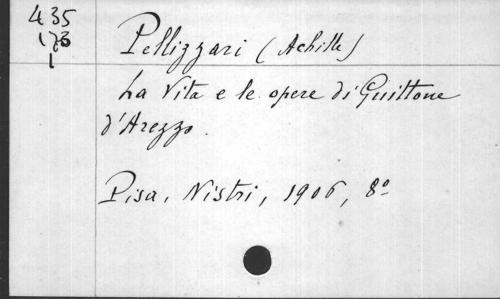 435
173
1
Pellizzari (Achille)
La Vita e le opere di Guittone
d'Arezzo.
Pisa, Nistri, 1906, 8º